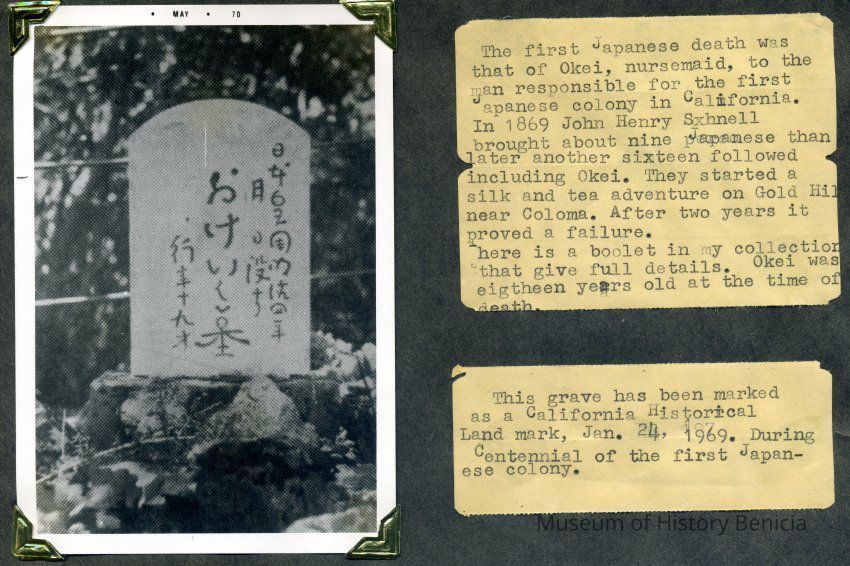 • MAY • 70
おけいく墓
行年十九才
The first Japanese death was
that of Okei, nursemaid, to the
man responsible for the first
Japanese colony in California.
In 1869 John Henry Sxhnell
brought about nine Japanese than
later another sixteen followed
including Okei. They started a
silk and tea adventure on Gold Hil
near Coloma. After two years it
proved a failure.
here is a boolet in my collection
that give full details. Okei was
eigtheen years old at the time of
death.
This grave has been marked
as a California Historical
Land mark, Jan. 24, 1969. During
Centennial of the first Japan-
ese colony.
Museum of History Benicia